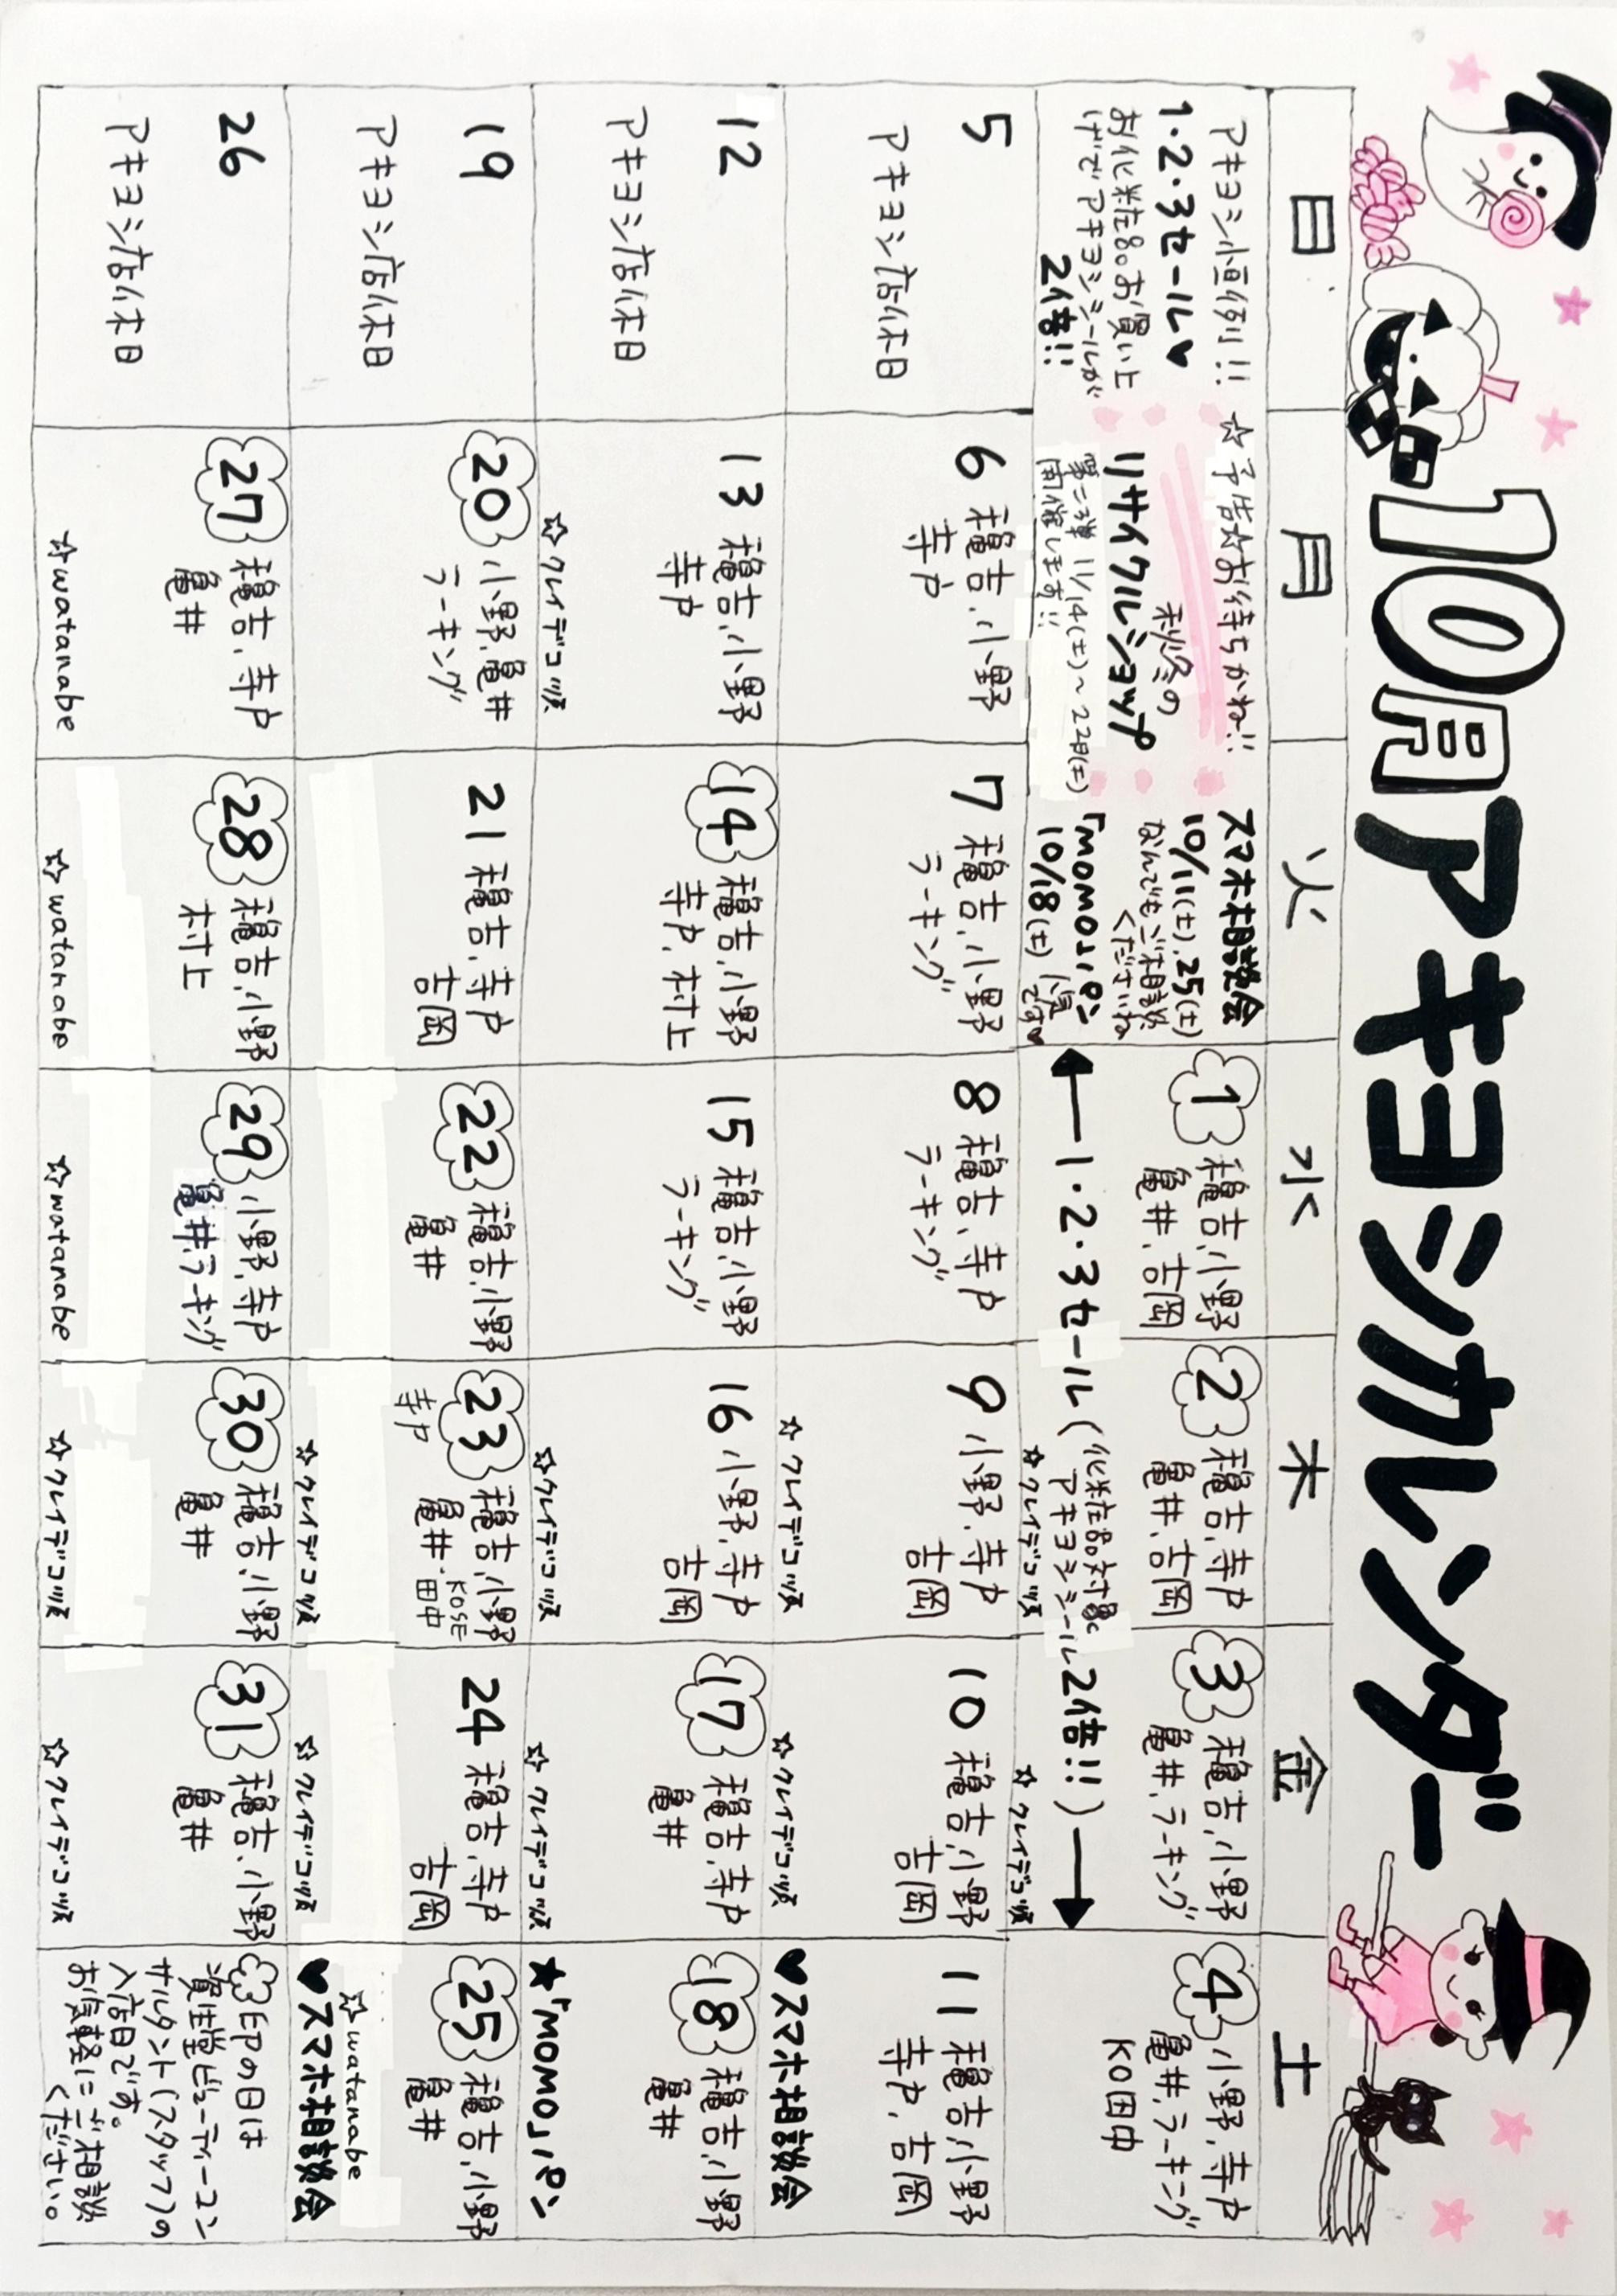 10月アキヨシカレンダー
日 月 火 水 木 金 土
アキヨシ恒例!!
1・2・3セール♥
お化粧品お買い上
げでアキヨシシールが
2倍!!
☆予告☆お待ちかね!!
秋冬の
リサイクルショップ
第二弾 11/14(土)~22日(土)
開催します!!
スマホ相談会
10/11(土),25(土)
なんでもご相談
くださいね
「momo」パン
10/18(土) 人気
です♥
1 穐吉,小野
亀井,吉岡
2 穐吉,寺戸
亀井,吉岡
☆クレイデコップ
3 穐吉,小野
亀井,ラーキング
☆クレイデコップ
4 小野,寺戸
亀井,ラーキング
KO田中
←1・2・3セール(化粧品対象
アキヨシシール2倍!!)→
5
アキヨシ店休日
6 穐吉,小野
寺戸
7 穐吉,小野
ラーキング
8 穐吉,寺戸
ラーキング
9 小野,寺戸
吉岡
☆クレイデコップ
10 穐吉,小野
吉岡
☆クレイデコップ
11 穐吉,小野
寺戸,吉岡
♥スマホ相談会
12
アキヨシ店休日
13 穐吉,小野
寺戸
☆クレイデコップ
14 穐吉,小野
寺戸,村上
15 穐吉,小野
ラーキング
16 小野,寺戸
吉岡
☆クレイデコップ
17 穐吉,寺戸
亀井
☆クレイデコップ
18 穐吉,小野
亀井
★「momo」パン
19
アキヨシ店休日
20 小野,亀井
ラーキング
21 穐吉,寺戸
吉岡
22 穐吉,小野
亀井
23 穐吉,小野
寺戸 亀井・KOSE田中
☆クレイデコップ
24 穐吉,寺戸
吉岡
☆クレイデコップ
25 穐吉,小野
亀井
☆watanabe
♥スマホ相談会
26
アキヨシ店休日
27 穐吉,寺戸
亀井
☆watanabe
28 穐吉,小野
村上
☆watanabe
29 小野,寺戸
亀井,ラーキング
☆watanabe
30 穐吉,小野
亀井
☆クレイデコップ
31 穐吉,小野
亀井
☆クレイデコップ
印の日は
資生堂ビューティーコン
サルタント(スタッフ)の
入店日です。
お気軽にご相談
ください。